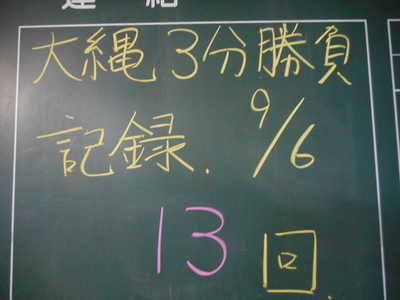 連絡
大縄 3分勝負
記録. 9/6
13回.